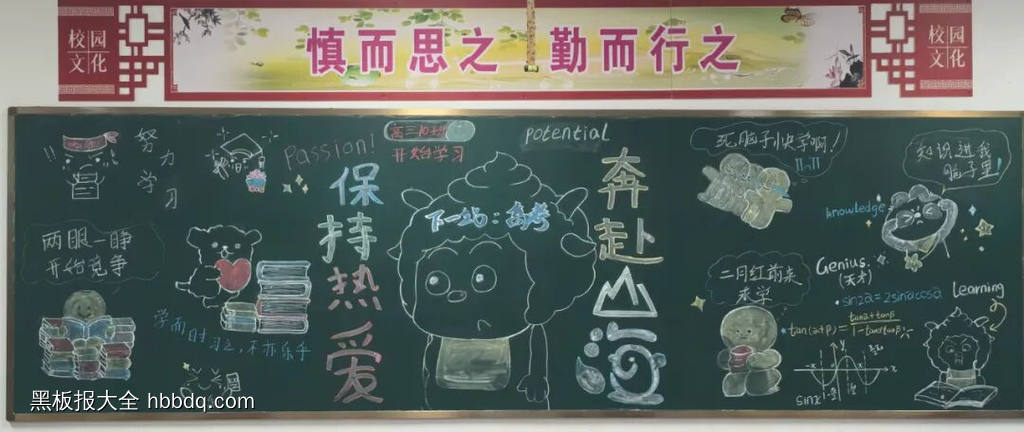 校园文化
慎而思之 勤而行之
校园文化
努力学习
Passion!
高三10班
开始学习
potential
死脑子快学啊!
知识进我
脑子里!
保持热爱
下一站:高考
奔赴山海
knowledge
两眼一睁
开始竞争
二月红前来
求学
Genius.
(天才)
sin2α=2sinαcosα
Learning
学而时习之,不亦乐乎
tan(α+β)=
tanα+tanβ
1-tanαtanβ
y
x
sinx
黑板报大全 hbbdq.com